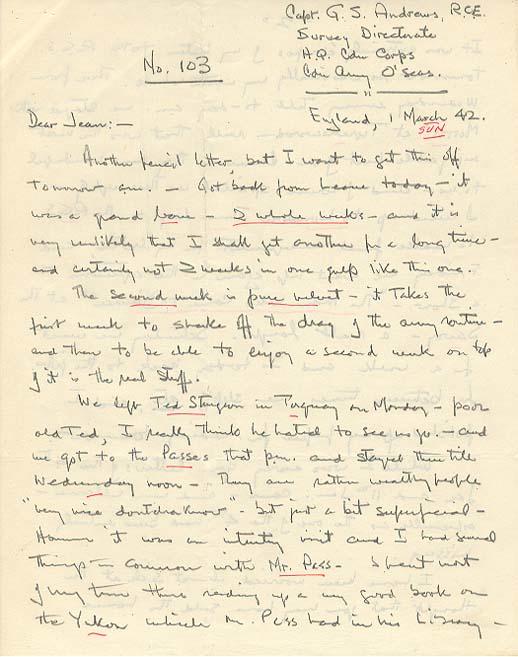 Capt. G. S. Andrews, R.C.E.
Survey Directorate
H.Q. Cdn Corps
Cdn Army O'Seas.
"
No. 103
England, 1 March 42.
SUN
Dear Jean:-
Another pencil letter, but I want to get this off
tomorrow am. - Got back from leave today - it
was a grand leave - 2 whole weeks - and it is
very unlikely that I shall get another for a long time -
and certainly not 2 weeks in one gulp like this one.
The second week is pure velvet - it takes the
first week to shake off the drag of the army routine -
and then to be able to enjoy a second week on top
of it is the real stuff.
We left Ted Sturgeon in Torquay on Monday - poor
old Ted, I really think he hated to see us go. - and
we got to the Passes that pm. and stayed there till
Wednesday noon - They are rather wealthy people
"very nice dontchaknow" - but just a bit superficial -
However it was an visit and I had several
things in common with Mr. Pass - I spent most
of my time there reading up a very good book on
the Yukon which Mr. Pass had in his library -